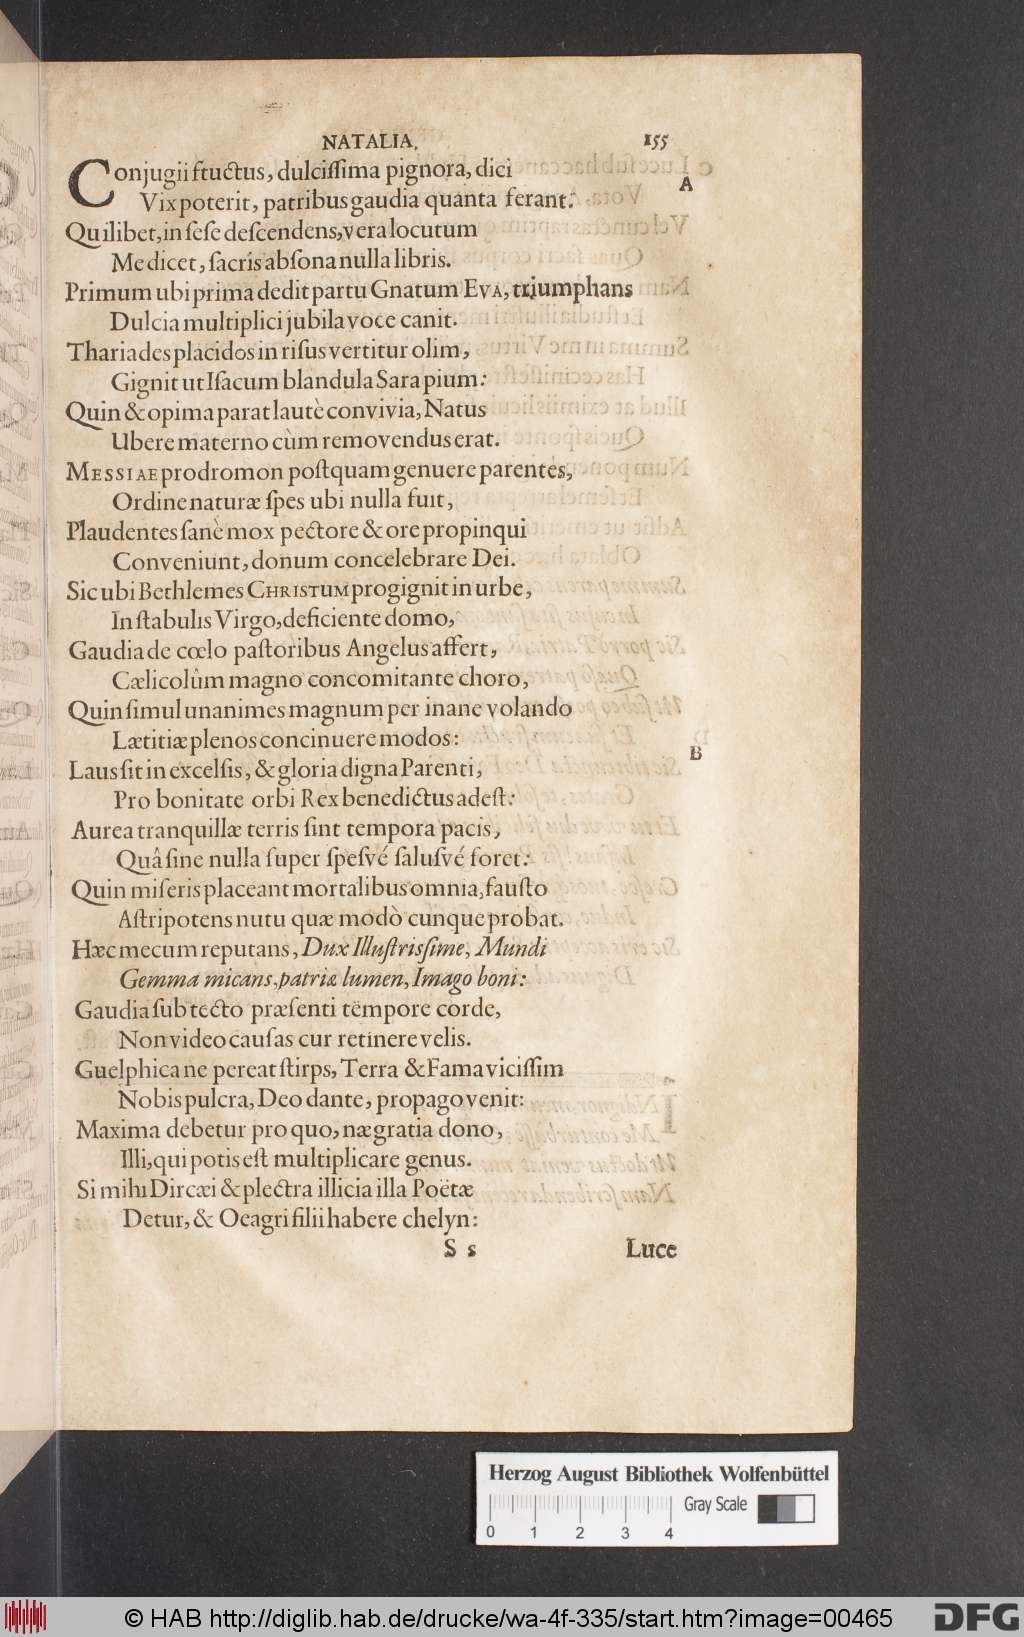 NATALIA. 155
Conjugii fructus, dulcissima pignora, dici
A
Vix poterit, patribus gaudia quanta ferant.
Quilibet, in sese descendens, vera locutum
Me dicet, sacris absona nulla libris.
Primum ubi prima dedit partu Gnatum EVA, triumphans
Dulcia multiplici jubila voce canit.
Thariades placidos in risus vertitur olim,
Gignit ut Isacum blandula Sara pium:
Quin & opima parat lautè convivia, Natus
Ubere materno cùm removendus erat.
MESSIAE prodromon postquam genuere parentes,
Ordine naturæ spes ubi nulla fuit,
Plaudentes sanè mox pectore & ore propinqui
Conveniunt, donum concelebrare Dei.
Sic ubi Bethlemes CHRISTUM progignit in urbe,
In stabulis Virgo, deficiente domo,
Gaudia de cœlo pastoribus Angelus affert,
Cælicolûm magno concomitante choro,
Quin simul unanimes magnum per inane volando
Lætitiæ plenos concinuere modos:
B
Laus sit in excelsis, & gloria digna Parenti,
Pro bonitate orbi Rex benedictus adest:
Aurea tranquillæ terris sint tempora pacis,
Quâ sine nulla super spesvé salusvé foret:
Quin miseris placeant mortalibus omnia, fausto
Astripotens nutu quæ modò cunque probat.
Hæc mecum reputans, Dux Illustrissime, Mundi
Gemma micans, patriæ lumen, Imago boni:
Gaudia sub tecto præsenti tempore corde,
Non video causas cur retinere velis.
Guelphica ne pereat stirps, Terra & Fama vicissim
Nobis pulcra, Deo dante, propago venit:
Maxima debetur pro quo, næ gratia dono,
Illi, qui potis est multiplicare genus.
Si mihi Dircæi & plectra illicia illa Poëtæ
Detur, & Oeagri filii habere chelyn:
S s Luce
Herzog August Bibliothek Wolfenbüttel
Gray Scale
0 1 2 3 4
© HAB http://diglib.hab.de/drucke/wa-4f-335/start.htm?image=00465 DFG